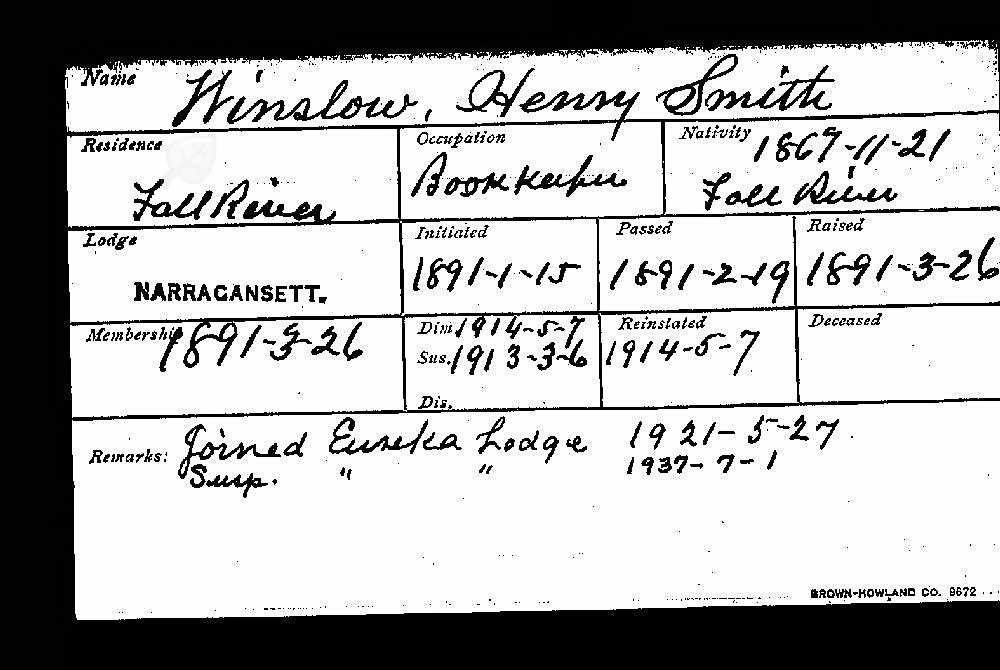 Name Winslow, Henry Smith
Residence Occupation Nativity 1867-11-21
Fall River Bookkeeper Fall River
Lodge Initiated Passed Raised
NARRAGANSETT. 1891-1-15 1891-2-19 1891-3-26
Membership 1891-3-26 Dim. 1914-5-7 Reinstated Deceased
Sus. 1913-3-6 1914-5-7
Dis.
Remarks: Joined Eureka Lodge 1921-5-27
Susp. " " 1937-7-1
BROWN-HOWLAND CO. 9672